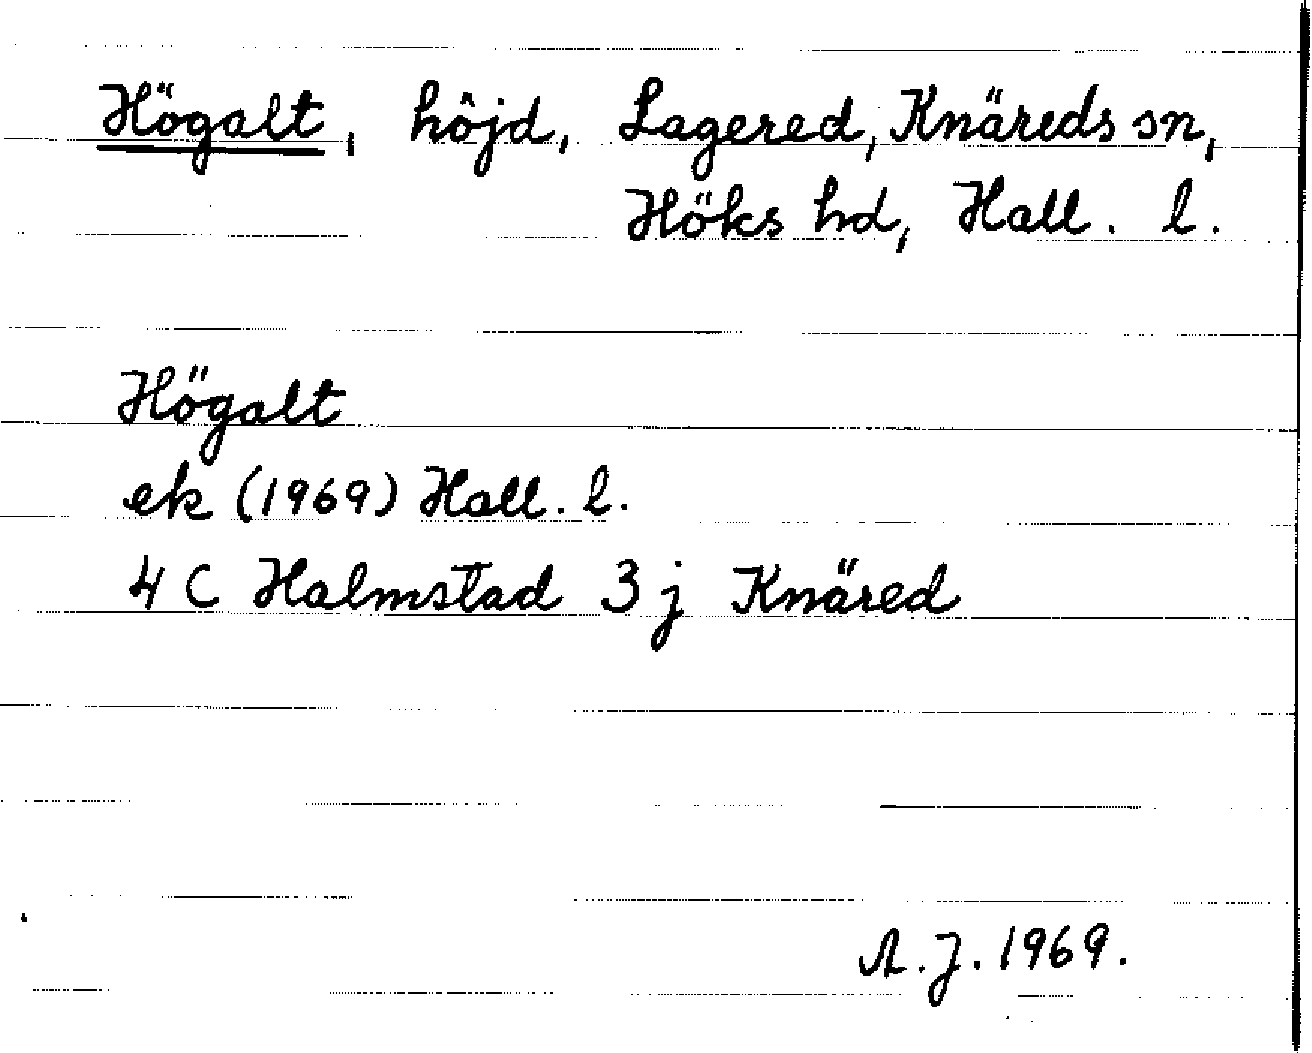 Högalt, höjd, Lagered, Knäreds sn,
Höks hd, Hall. l.
Högalt
ek (1969) Hall. l.
4 C Halmstad 3 j Knäred
A.J. 1969.